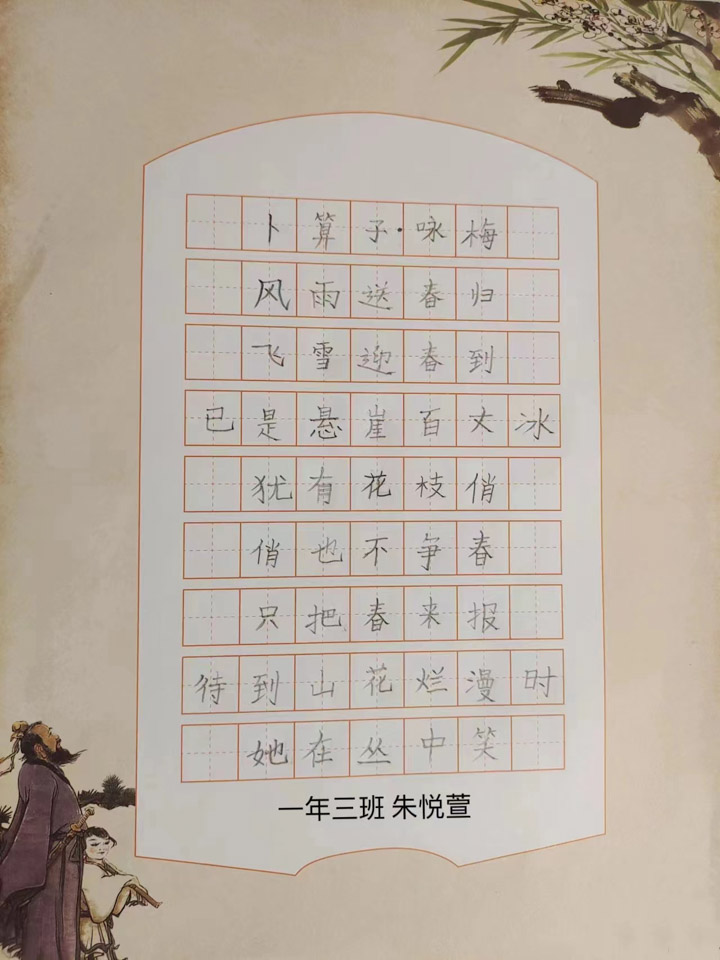 卜算子·咏梅
风雨送春归
飞雪迎春到
已是悬崖百丈冰
犹有花枝俏
俏也不争春
只把春来报
待到山花烂漫时
她在丛中笑
一年三班 朱悦萱